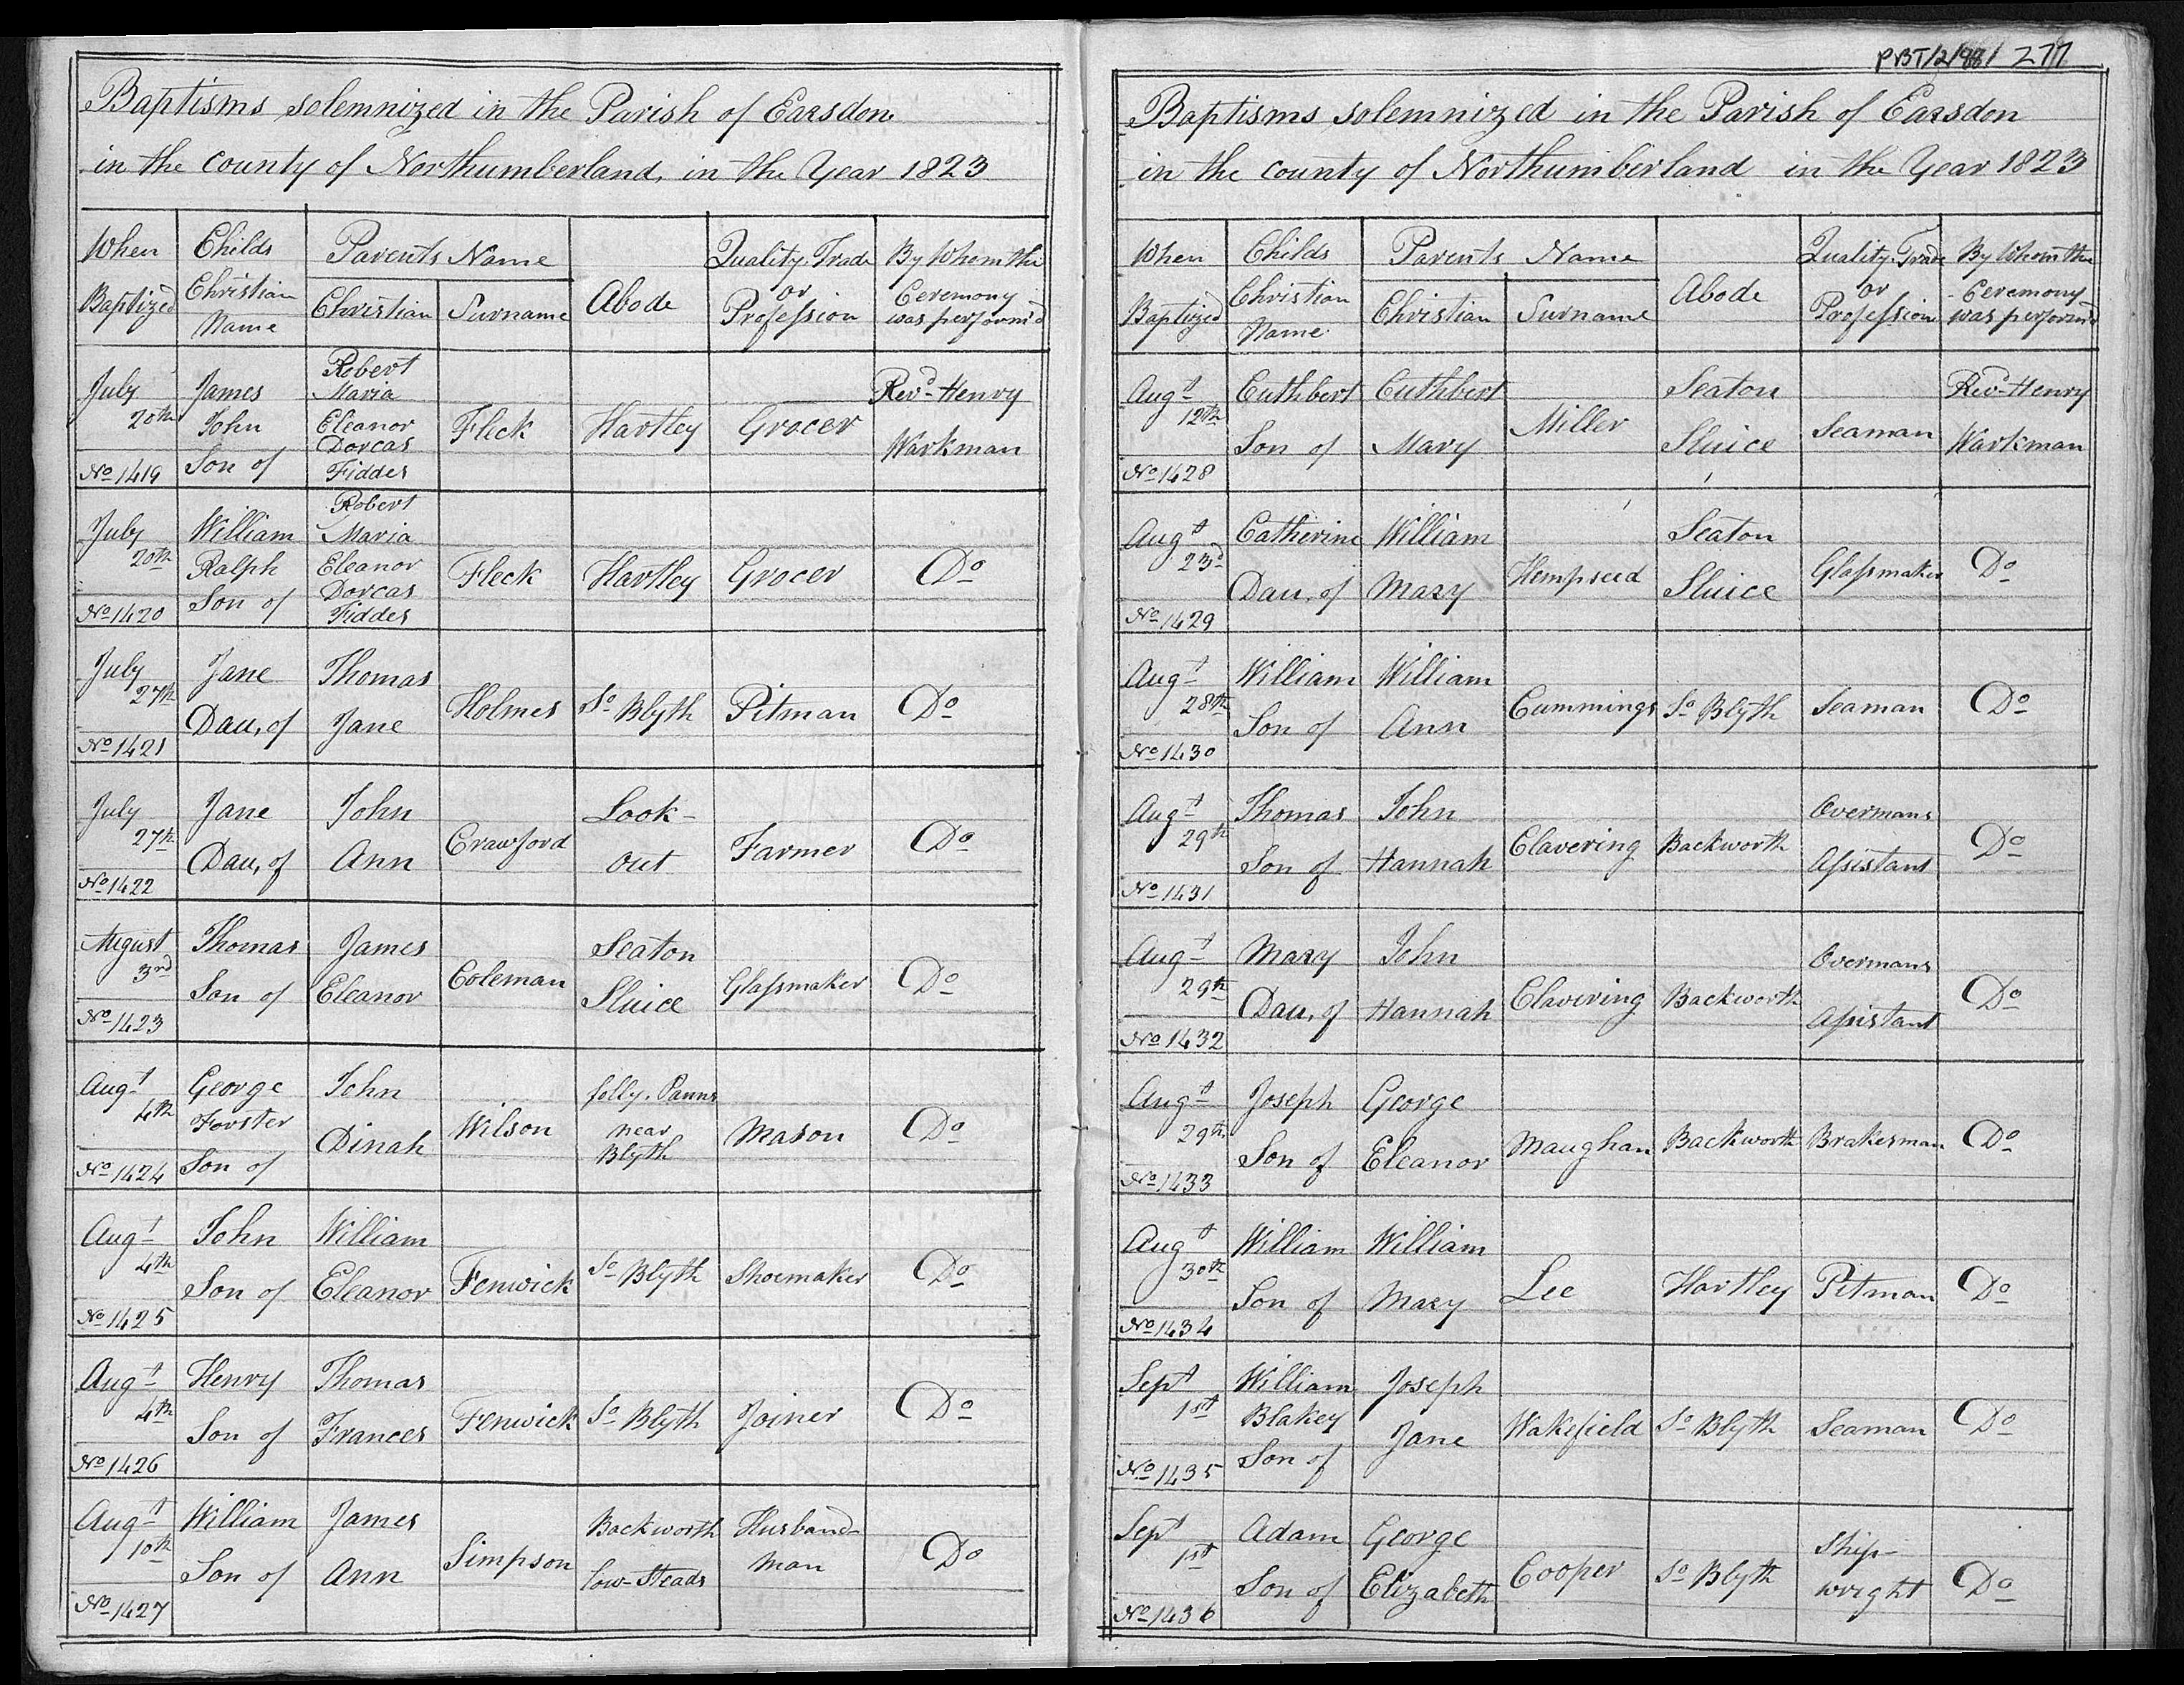 PBT/2/88/ 277
Baptisms solemnized in the Parish of Earsdon
in the county of Northumberland, in the Year 1823
When Baptized | Childs Christian Name | Parents Name Christian | Surname | Abode | Quality, Trade or Profession | By Whom the Ceremony was perform'd
July 20th No 1419 | James John Son of | Robert Maria Eleanor Dorcas Fiddes | Fleck | Hartley | Grocer | Revd Henry Warkman
July 20th No 1420 | William Ralph Son of | Robert Maria Eleanor Dorcas Fiddes | Fleck | Hartley | Grocer | Do
July 27th No 1421 | Jane Dau, of | Thomas Jane | Holmes | So Blyth | Pitman | Do
July 27th No 1422 | Jane Dau, of | John Ann | Crawford | Look-out | Farmer | Do
August 3rd No 1423 | Thomas Son of | James Eleanor | Coleman | Seaton Sluice | Glassmaker | Do
Augt 4th No 1424 | George Forster Son of | John Dinah | Wilson | folly, Panns near Blyth | Mason | Do
Augt 4th No 1425 | John Son of | William Eleanor | Fenwick | So Blyth | Shoemaker | Do
Augt 4th No 1426 | Henry Son of | Thomas Frances | Fenwick | So Blyth | Joiner | Do
Augt 10th No 1427 | William Son of | James Ann | Simpson | Backworth low-Steads | Husband-man | Do
Baptisms solemnized in the Parish of Earsdon
in the county of Northumberland in the Year 1823
When Baptized | Childs Christian Name | Parents Name Christian | Surname | Abode | Quality, Trade or Profession | By Whom the Ceremony was perform'd
Augt 12th No 1428 | Cuthbert Son of | Cuthbert Mary | Miller | Seaton Sluice | Seaman | Revd Henry Warkman
Augt 23d No 1429 | Catherine Dau, of | William Mary | Hempseed | Seaton Sluice | Glassmaker | Do
Augt 28th No 1430 | William Son of | William Ann | Cummings | So Blyth | Seaman | Do
Augt 29th No 1431 | Thomas Son of | John Hannah | Clavering | Backworth | Overmans Assistant | Do
Augt 29th No 1432 | Mary Dau, of | John Hannah | Clavering | Backworth | Overmans Assistant | Do
Augt 29th No 1433 | Joseph Son of | George Eleanor | Maughan | Backworth | Brakesman | Do
Augt 30th No 1434 | William Son of | William Mary | Lee | Hartley | Pitman | Do
Sept 1st No 1435 | William Blakey Son of | Joseph Jane | Wakefield | So Blyth | Seaman | Do
Sept 1st No 1436 | Adam Son of | George Elizabeth | Cooper | So Blyth | Ship-wright | Do